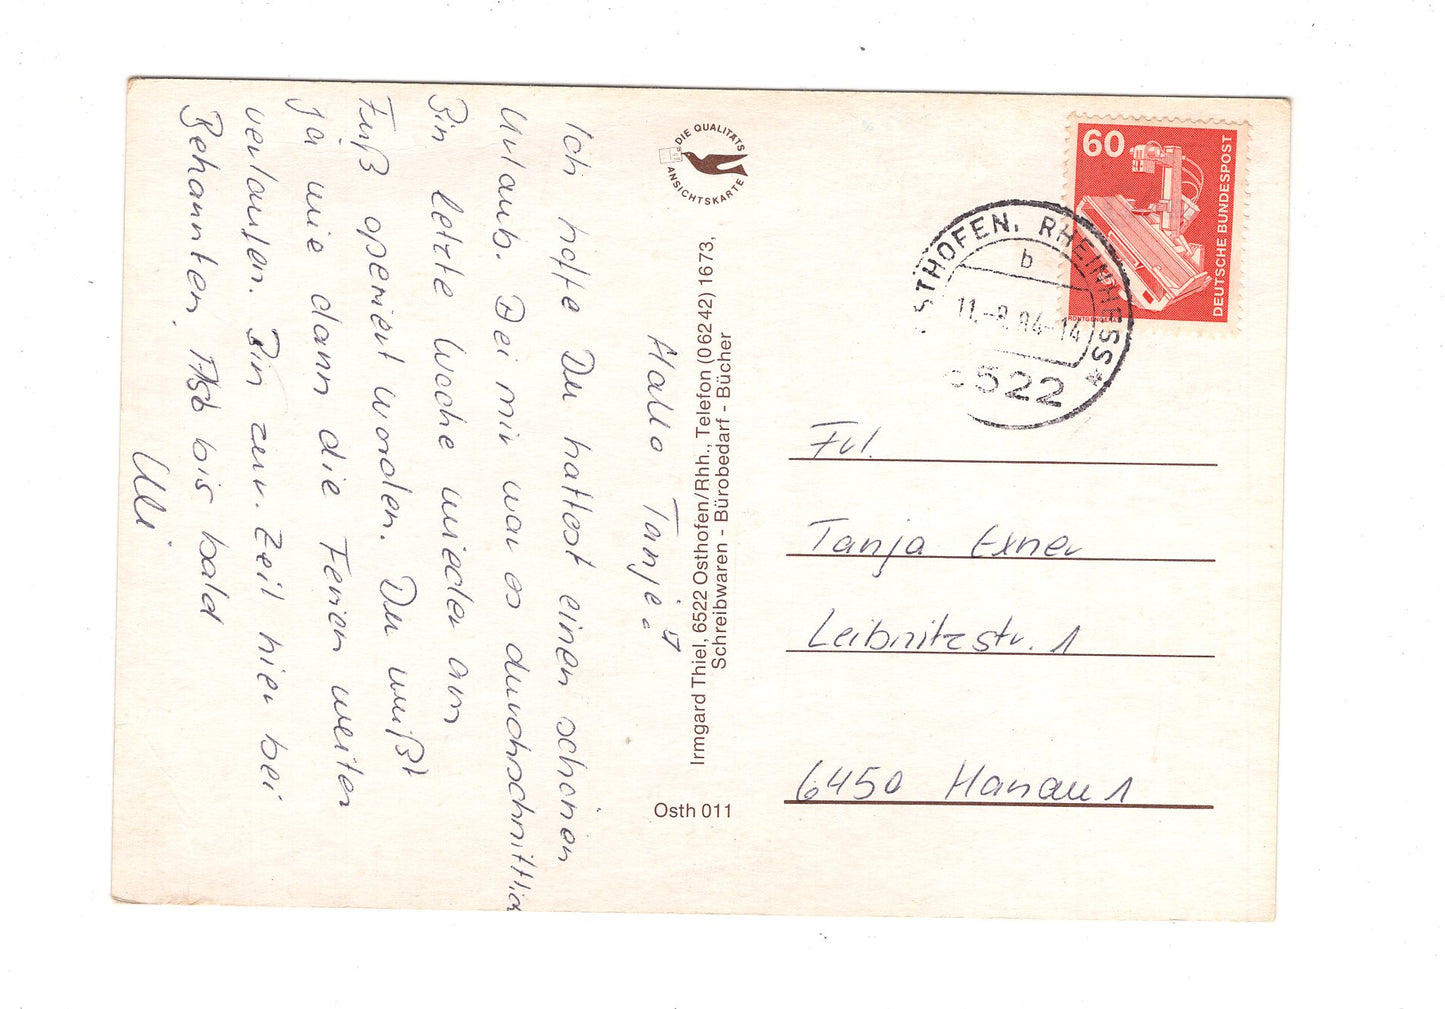 Hallo Tanja!
Ich hoffe Du hattest einen schönen
Urlaub. Bei mir war es durchschnittlich
Bin letzte Woche wieder am
Fuß operiert worden. Du weißt
ja wie dann die Ferien weiter
verlaufen. Bin zur. Zeit hier bei
Bekannten. Also bis bald
Uli
DIE QUALITÄTS
ANSICHTSKARTE
Irmgard Thiel, 6522 Osthofen/Rhh., Telefon (06242) 1673,
Schreibwaren - Bürobedarf - Bücher
Osth 011
60
DEUTSCHE BUNDESPOST
OSTHOFEN, RHEINHESS
b
11.-8.84-14
6522
Frl.
Tanja Exner
Leibnitzstr. 1
6450 Hanau 1